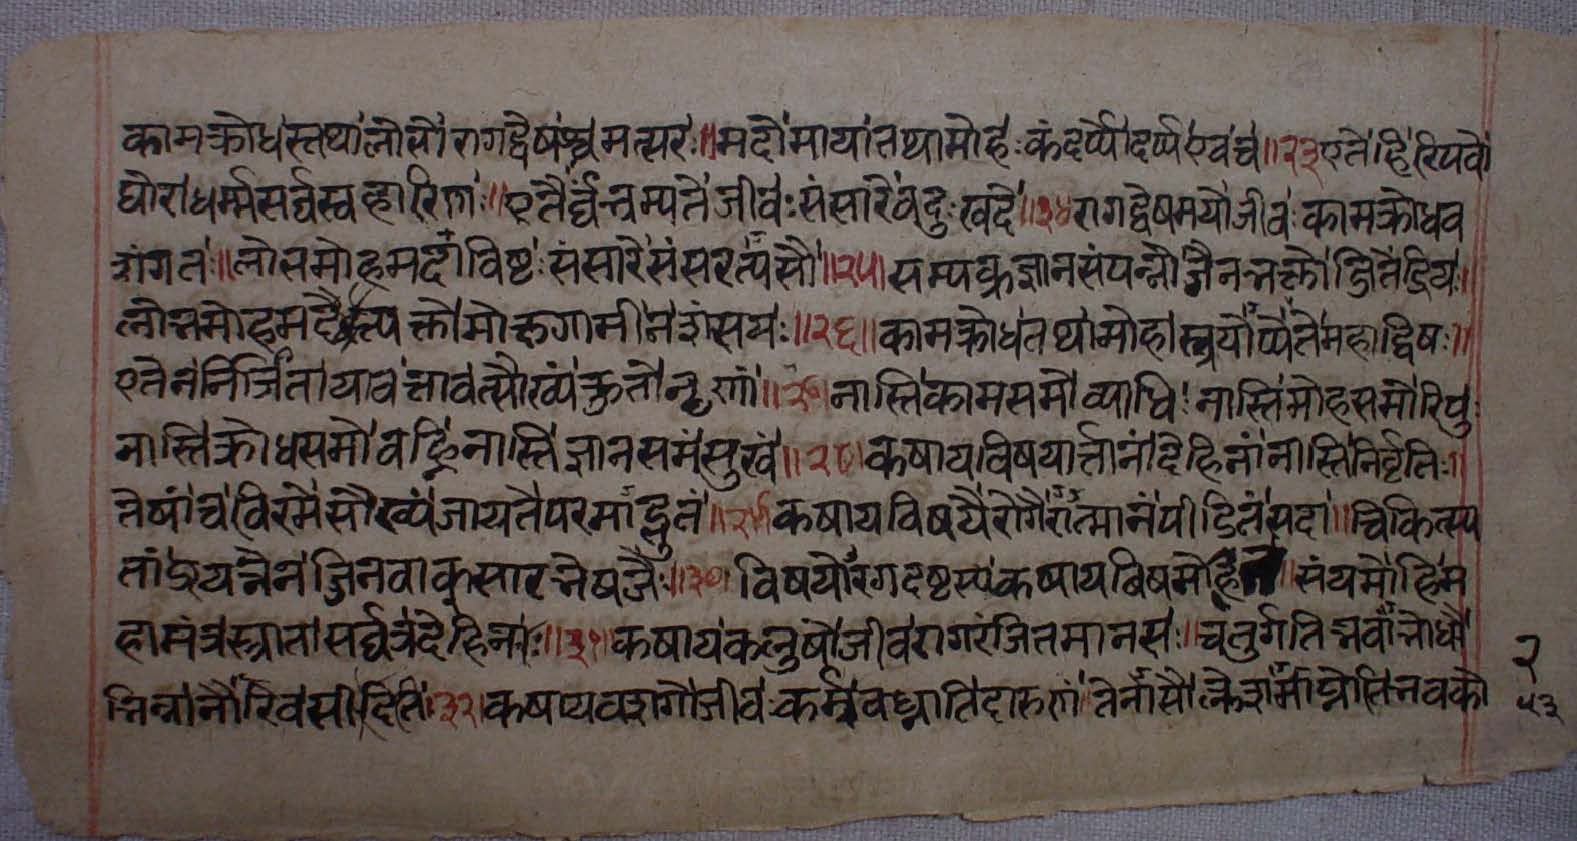 कामक्रोधस्तथालोभोरागद्वेषश्चमत्सरः॥मदोमायातथामोहःकंदर्प्पोदर्प्पएवच॥२३एतेहिरिपवो
घोराधर्म्मसर्वस्वहारिणः॥एतैर्बंभ्रम्यतेजीवःसंसारेबहुदुःखदे॥२४रागद्वेषमयोजीवःकामक्रोधव
शंगतः॥लोभमोहमदाविष्टःसंसारेसंसरत्यसौ॥२५॥सम्यक्त्वज्ञानसंपन्नोजैनभक्तोजितेंद्रियः॥
लोभमोहमदैस्त्यक्तोमोक्षगामीनसंशयः॥२६॥कामक्रोधतथामोहास्त्रयोप्येतेमहाद्विषः॥
एतेननिर्जितायावत्तावत्सौख्यंकुतोनृणां॥२७॥नास्तिकामसमोव्याधिःनास्तिमोहसमोरिपुः
नास्तिक्रोधसमोवह्निःनास्तिज्ञानसमंसुखं॥२८॥कषायविषयार्त्तानांदेहिनांनास्तिनिर्वृतिः॥
तेषांचविरमेसौख्यंजायतेपरमाद्भुतं॥२९॥कषायविषयैरोगैरात्मानंपीडितंसदा॥चिकित्स्य
तांप्रयत्नेनजिनवाक्सारभेषजैः॥३०॥विषयोरगदष्टस्यकषायविषमोहितः॥संयमोहिम
हामंत्रस्त्रातासर्वत्रदेहिनां॥३१॥कषायकलुषोजीवरागरंजितमानसः॥चतुर्गतिभवांभोधौ
भिन्नानौरिवसीदति॥३२॥कषायवशगोजीवःकर्म्मबध्नातिदारुणं॥तेनासौक्लेशमाप्नोतिभवको
२
५३